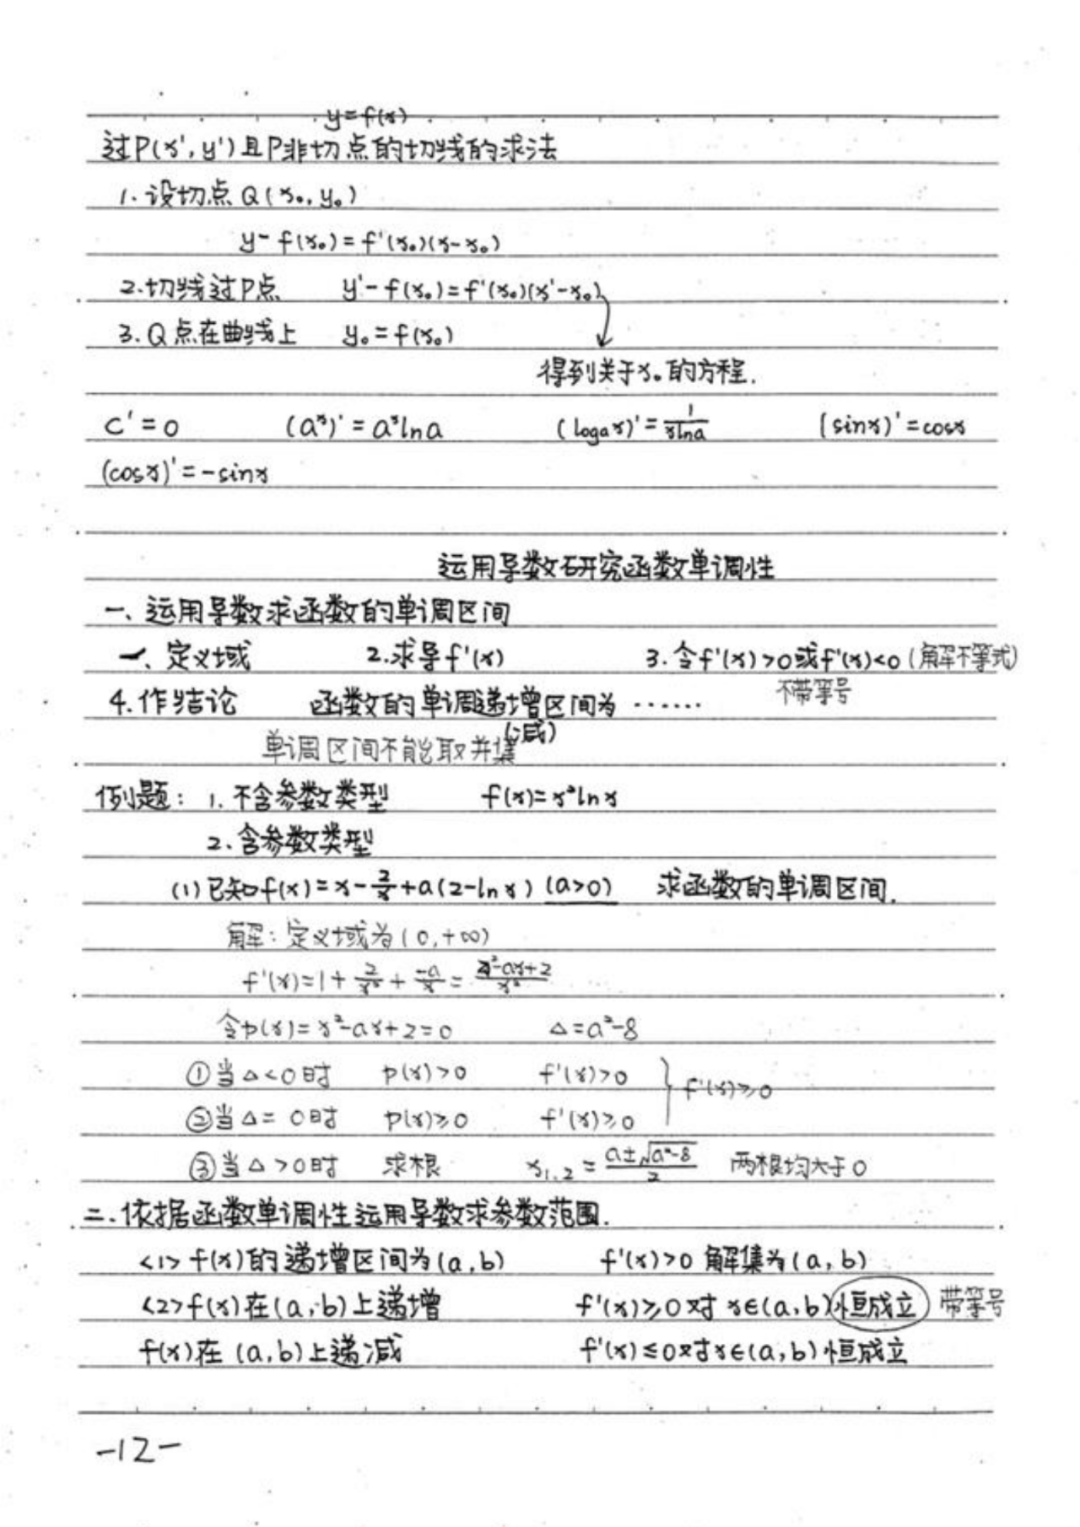 y=f(x)
过P(x',y')且P非切点的切线的求法
1.设切点Q(x₀,y₀)
y-f(x₀)=f'(x₀)(x-x₀)
2.切线过P点 y'-f(x₀)=f'(x₀)(x'-x₀)
3.Q点在曲线上 y₀=f(x₀)
得到关于x₀的方程.
C'=0 (aˣ)'=aˣlna (logₐx)'=1/(xlna) (sinx)'=cosx
(cosx)'=-sinx
运用导数研究函数单调性
一、运用导数求函数的单调区间
一、定义域 2.求导f'(x) 3.令f'(x)>0或f'(x)<0(解不等式)
不带等号
4.作结论 函数的单调递增区间为……
(减)
单调区间不能取并集
例题: 1.不含参数类型 f(x)=x²lnx
2.含参数类型
(1)已知f(x)=x-2/x+a(2-lnx)(a>0) 求函数的单调区间.
解:定义域为(0,+∞)
f'(x)=1+2/x²+-a/x=(x²-ax+2)/x²
令p(x)=x²-ax+2=0 △=a²-8
①当△<0时 p(x)>0 f'(x)>0
f'(x)≥0
②当△=0时 p(x)≥0 f'(x)≥0
③当△>0时 求根 x₁,₂=(a±√(a²-8))/2 两根均大于0
二.依据函数单调性运用导数求参数范围.
<1>f(x)的递增区间为(a,b) f'(x)>0 解集为(a,b)
<2>f(x)在(a,b)上递增 f'(x)≥0对x∈(a,b)恒成立 带等号
f(x)在(a,b)上递减 f'(x)≤0对x∈(a,b)恒成立
-12-